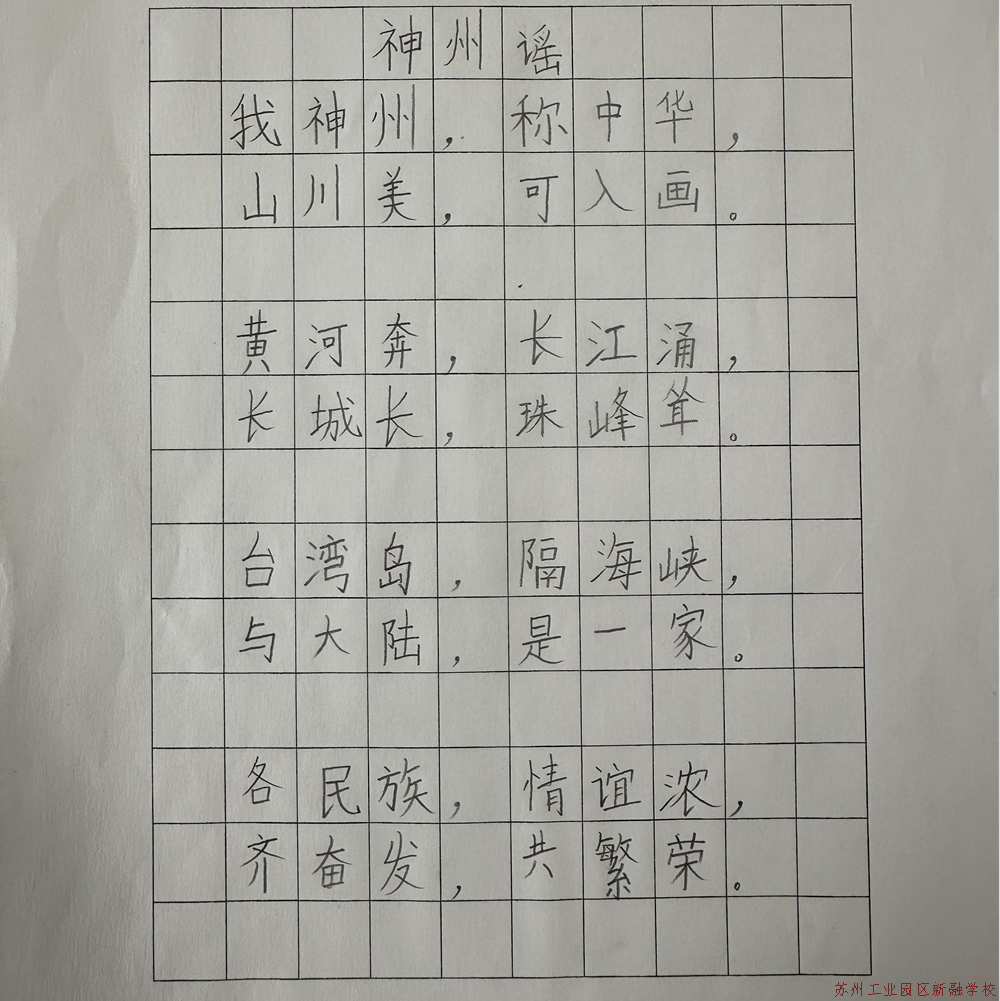 神州谣
我神州，称中华，
山川美，可入画。
黄河奔，长江涌，
长城长，珠峰耸。
台湾岛，隔海峡，
与大陆，是一家。
各民族，情谊浓，
齐奋发，共繁荣。
苏州工业园区新融学校